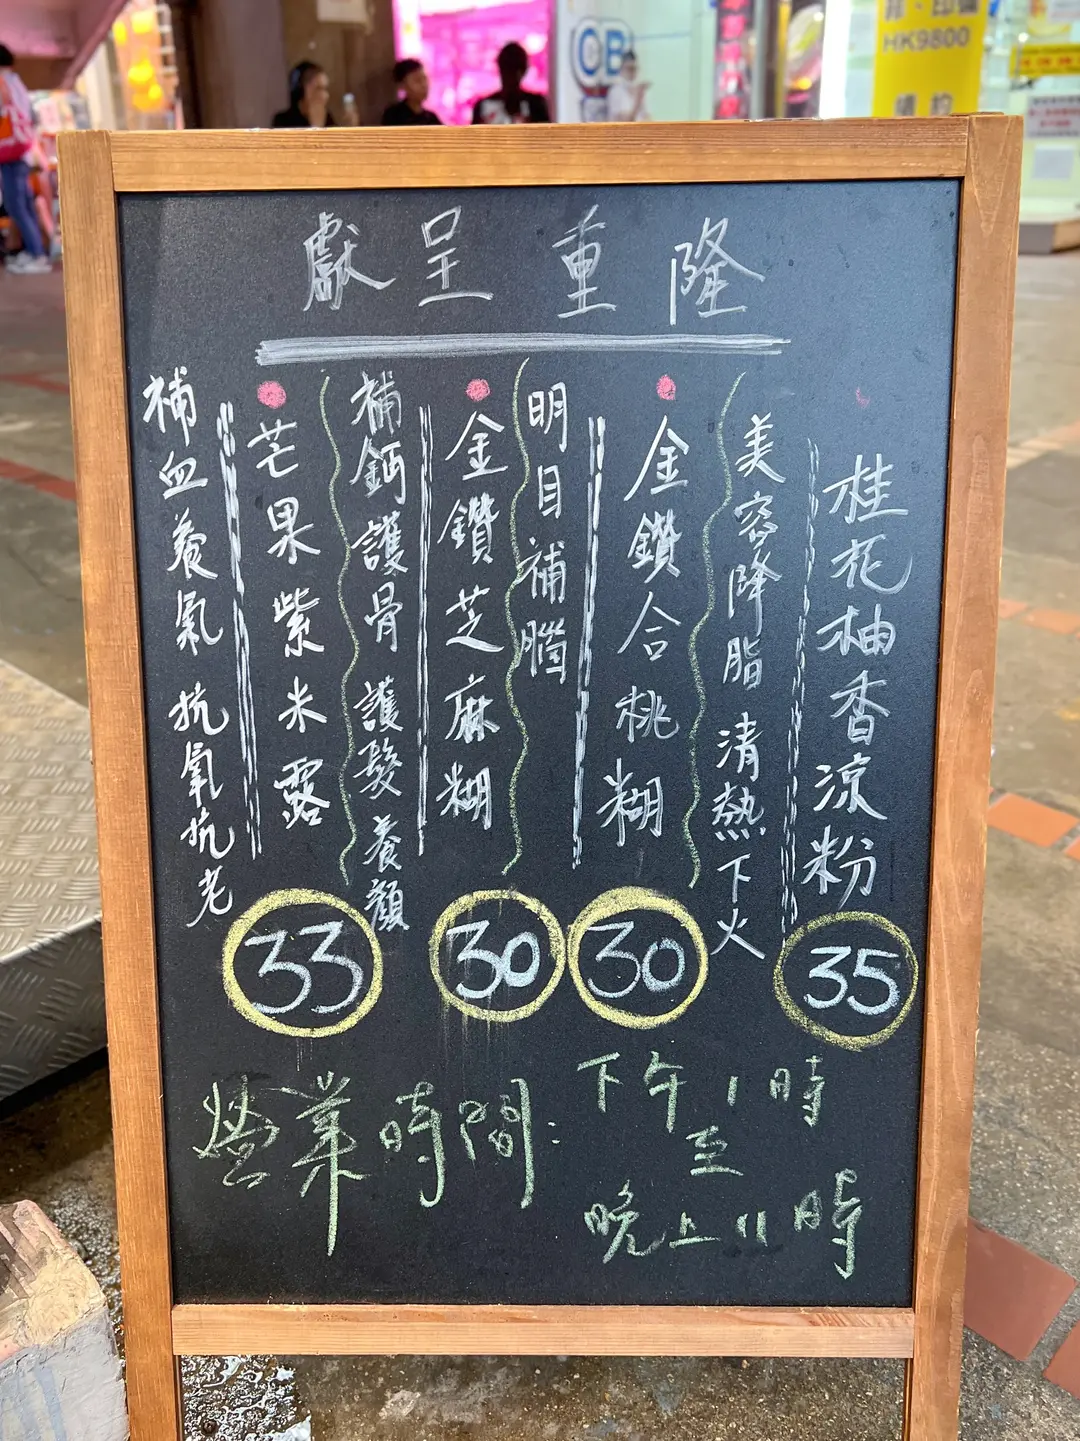 隆重呈獻
桂花柚香涼粉
35
美容降脂 清熱下火
金鑽合桃糊
30
明目補腦
金鑽芝麻糊
30
補鈣護骨 護髮養顏
芒果紫米露
33
補血養氣 抗氧抗老
營業時間:
下午1時
至
晚上11時
HK9800